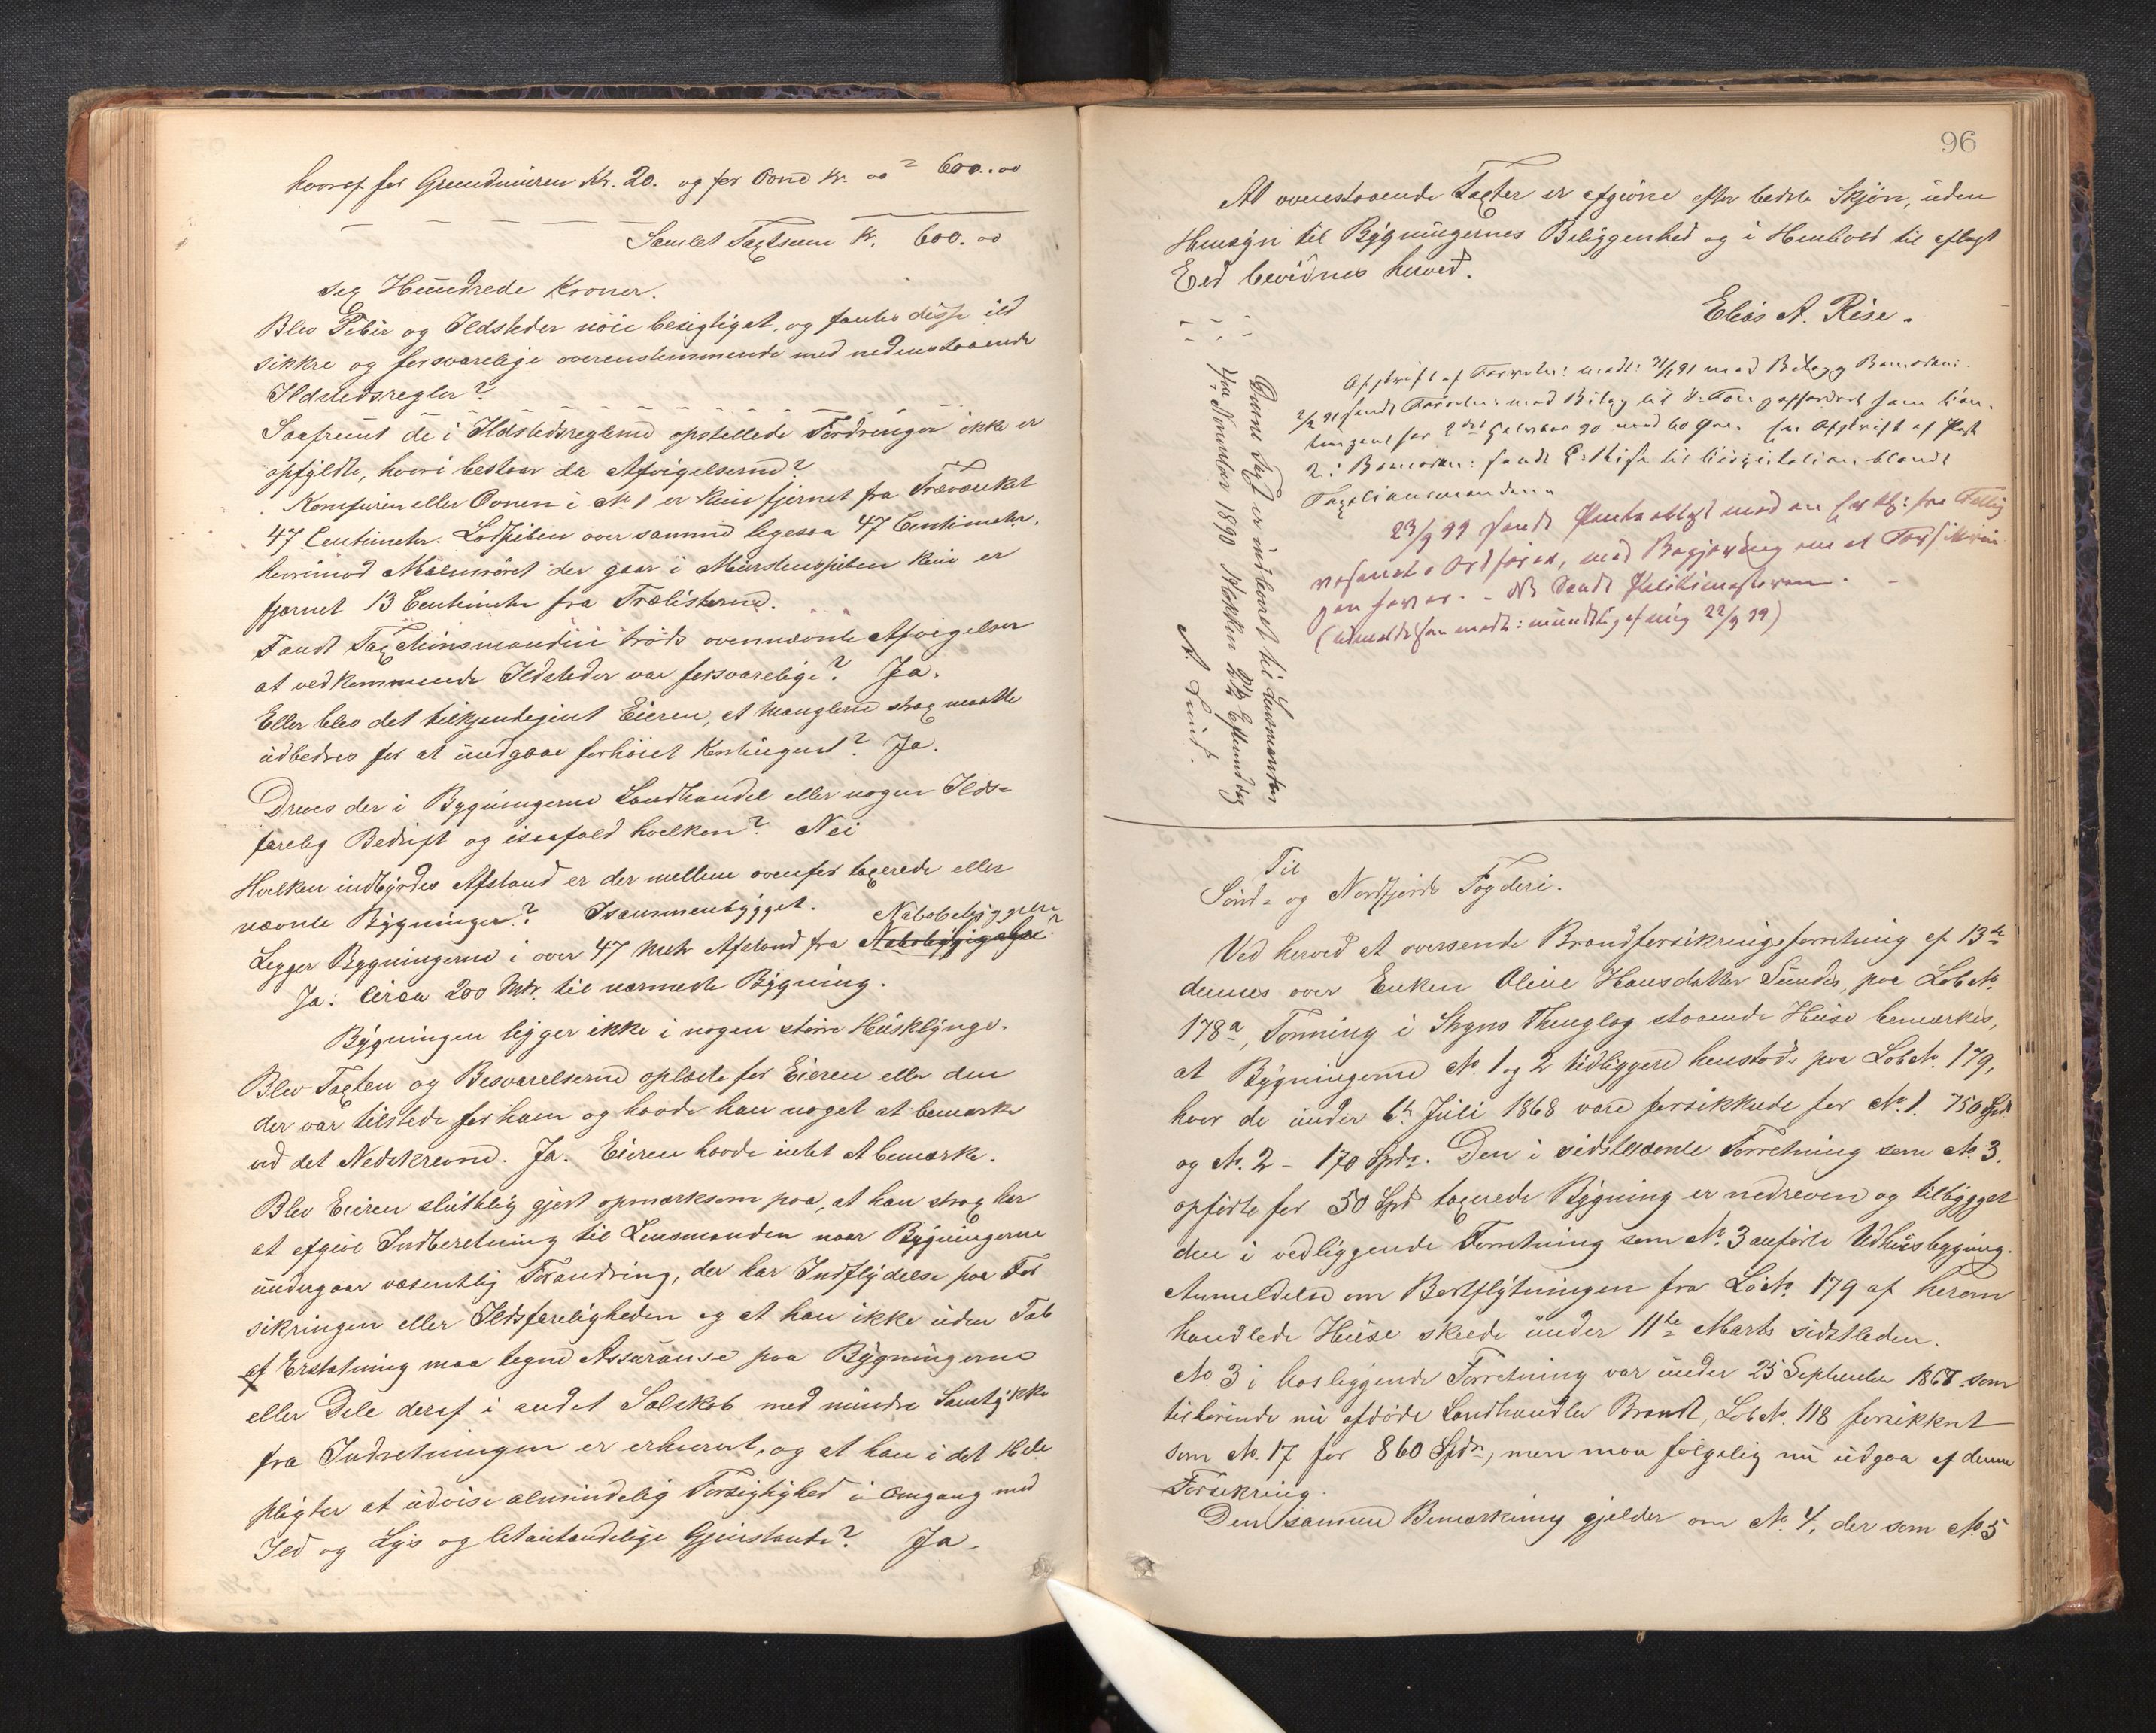 hvoraf for Grundmuren Kr. 20. og for Ovne Kr. 00 = 600.00
Samlet Taxtsum Kr. 600.00
sex Hundrede Kroner.
Blev Piber og Ildsteder nöie besigtiget, og fantes disse ild
sikkre og forsvarelige overenstemmende med nedenstaaende
Ildstedsregler?
Saafremt de i Ildstedsreglerne opstillede Fordringer ikke er
opfyldte, hvori bestaar da Afvigelserne?
Komfuren eller Ovnen i No 1 er kun fjernet fra Træværket
47 Centimeter. Lodpiben over samme ligesaa 47 Centimeter,
hvorimod Malmröret der gaar i Murstenspiben kun er
fjernet 13 Centimeter fra Trælisterne.
Fandt Taxtionsmanden tröds ovennævnte Afvigelser
at vedkommende Ildsteder var forsvarelige? Ja.
Eller blev det tilkjendegivet Eieren, at Manglerne strax maatte
udbedres for at undgaae forhöiet Kontingent? Ja.
Dreves der i Bygningerne Landhandel eller nogen Ilds-
farelig Bedrift og isaafald hvilken? Nei
Hvilken indbyrdes Afstand er der mellem ovenfor taxerede eller
nævnte Bygninger? Isammenbygget.
Nabobebyggelse
Ligger Bygningerne i over 47 Meter Afstand fra Nabobebyggelse?
Ja. Circa 200 Mtr. til nærmeste Bygning.
Bygningen ligger ikke i nogen större Husklynge.
Blev Taxten og Besvarelserne oplæste for Eieren eller den
der var tilstede for ham og havde han noget at bemærke
ved det Nedskrevne. Ja. Eieren havde intet At bemærke.
Blev Eieren sluttelig gjort opmærksom paa, at han strax har
at afgive Indberetning til Lensmanden naar Bygningerne
undergaar væsentlig Forandring, der har Indflydelse paa For
sikringen eller Ildsfarligheden og at han ikke uden Tab
af Erstatning maa tegne Assuranse paa Bygningerne
eller Dele deraf i andet Selskab med mindre Samtykke
fra Indretningen er erhvervet, og at han i det Hele
pligter at udvise almindelig Forsigtighed i Omgang med
Ild og Lys og letantændelige Gjenstande? Ja.
96
At ovenstaaende Taxter er afgivne efter bedste Skjön, uden
Hensyn til Bygningernes Beliggenhed og i Henhold til aflagt
Eed bevidnes herved.
Elias A. Rise.
Afskrift af Forretn: modt: 31/1 91 med Bilag Bemærkn:
2/2 91 sendt Forretn: med Bilag til
2. Bemærkn: sendt
Taxtionsmændene
23/9 99 sendt med
(udmeldelsen modt: mundtlig af mig 22/9 99)
Denne Taxt er indleveret til Lensmanden
November 1890 Klokken Eftermiddag
A. Lund.
Til
Sönd- og Nordfjords Fogderi.
Ved herved at oversende Brandforsikringsforretning af 13de
dennes over Enken Oline Hansdatter Sundes, paa Löb No
178a, Tonning i Stryns Thinglag staaende Huse bemærkes,
at Bygningerne No. 1 og 2 tidligere henstod paa Löb No. 179,
hvor de under 6te Juli 1868 vare forsikkrede for No. 1. 750 Spd.
og No. 2 - 170 Spdr. Den i sidstnævnte Forretning som No. 3.
opförte for 50 Spd taxerede Bygning er nedreven og tilbygget
den i vedliggende Forretning som No. 3 anförte Udhusbygning.
Anmeldelse om Bortflytningen fra Lö. No. 179 af herom
handlede Huse skede under 11te Marts sidstleden.
No. 3 i hosliggende Forretning var under 25 September 1868 som
tilhörende nu afdöde Landhandler Brandt, Löb No. 118 forsikkret
som No. 17 for 860 Spdr, men maa fölgelig nu udgaa af denne
Forsikring.
Den samme Bemærkning gjelder om No. 4, der som No 5